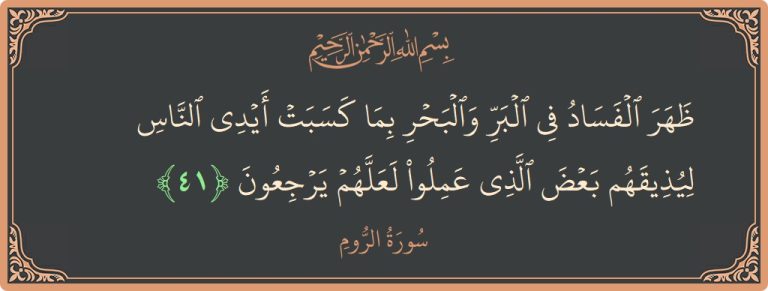 بِسْمِ اللَّهِ الرَّحْمَٰنِ الرَّحِيمِ
ظَهَرَ ٱلْفَسَادُ فِى ٱلْبَرِّ وَٱلْبَحْرِ بِمَا كَسَبَتْ أَيْدِى ٱلنَّاسِ
لِيُذِيقَهُم بَعْضَ ٱلَّذِى عَمِلُوا۟ لَعَلَّهُمْ يَرْجِعُونَ ﴿٤١﴾
سُورَةُ الرُّومِ